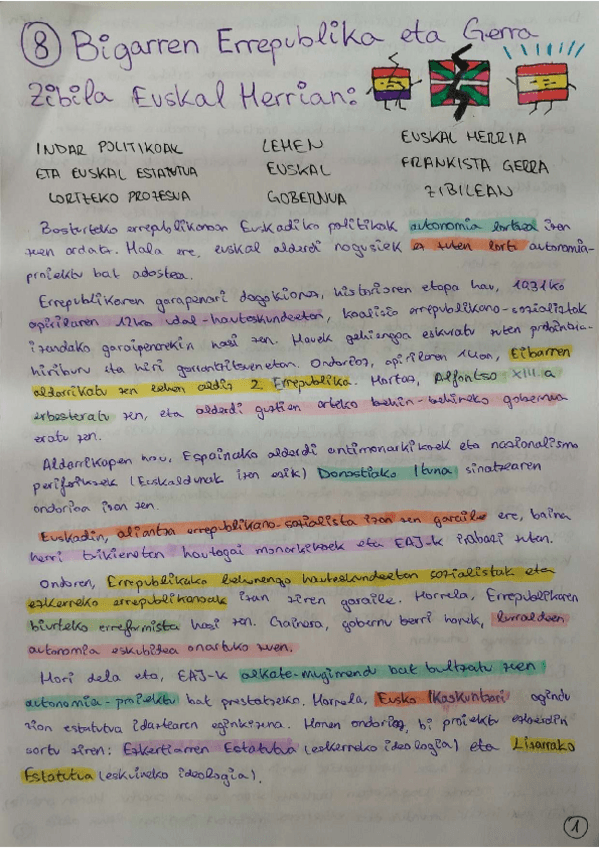 8 Bigarren Errepublika eta Gerra
Zibila Euskal Herrian:
INDAR POLITIKOAK
ETA EUSKAL ESTATUTUA
LORTZEKO PROZESUA
LEHEN
EUSKAL
GOBERNUA
EUSKAL HERRIA
FRANKISTA GERRA
ZIBILEAN
Bosturteko errepublikanoan Euskadiko politikak autonomia lortzea izan
zuen ardatz. Hala ere, euskal alderdi nagusiek ez zuten lortu autonomia-
proiektu bat adostea.
Errepublikaren garapenari dagokionez, historiaren etapa hau, 1931ko
apirilaren 12ko udal-hauteskundeetan, koalizio errepublikano-sozialistak
izandako garaipenarekin hasi zen. Hauek gehiengoa eskuratu zuten probintzia-
hiriburu eta hiri garrantzitsuenetan. Ondorioz, apirilaren 14an, Eibarren
aldarrikatu zen lehen aldiz 2. Errepublika. Hortaz, Alfontso XIII.a
erbesteratu zen, eta alderdi guztien arteko behin-behineko gobernua
eratu zen.
Aldarrikapen hau, Espainako alderdi antimonarkikoek eta nazionalismo
periferikoek (Euskaldunak izan ezik) Donostiako Ituna sinatzearen
ondorioa izan zen.
Euskadin, aliantza errepublikano-sozialista izan zen garaile ere, baina
herri txikienetan hautagai monarkikoek eta EAJ-k irabazi zuten.
Ondoren, Errepublikako lehenengo hauteskundeetan sozialistak eta
ezkerreko errepublikanoak izan ziren garaile. Horrela, Errepublikaren
biurteko erreformista hasi zen. Gainera, gobernu berri honek, lurraldeen
autonomia eskubidea onartuko zuen.
Hori dela eta, EAJ-k alkate-mugimendu bat bultzatu zuen
autonomia-proiektu bat prestatzeko. Horrela, Eusko Ikaskuntzari agindu
zion estatutua idaztearen eginkizuna. Honen ondorioz, bi proiektu ezberdin
sortu ziren: Ezkertiarren Estatutua (ezkerreko ideologia) eta Lizarrako
Estatutua (eskuineko ideologia).
1